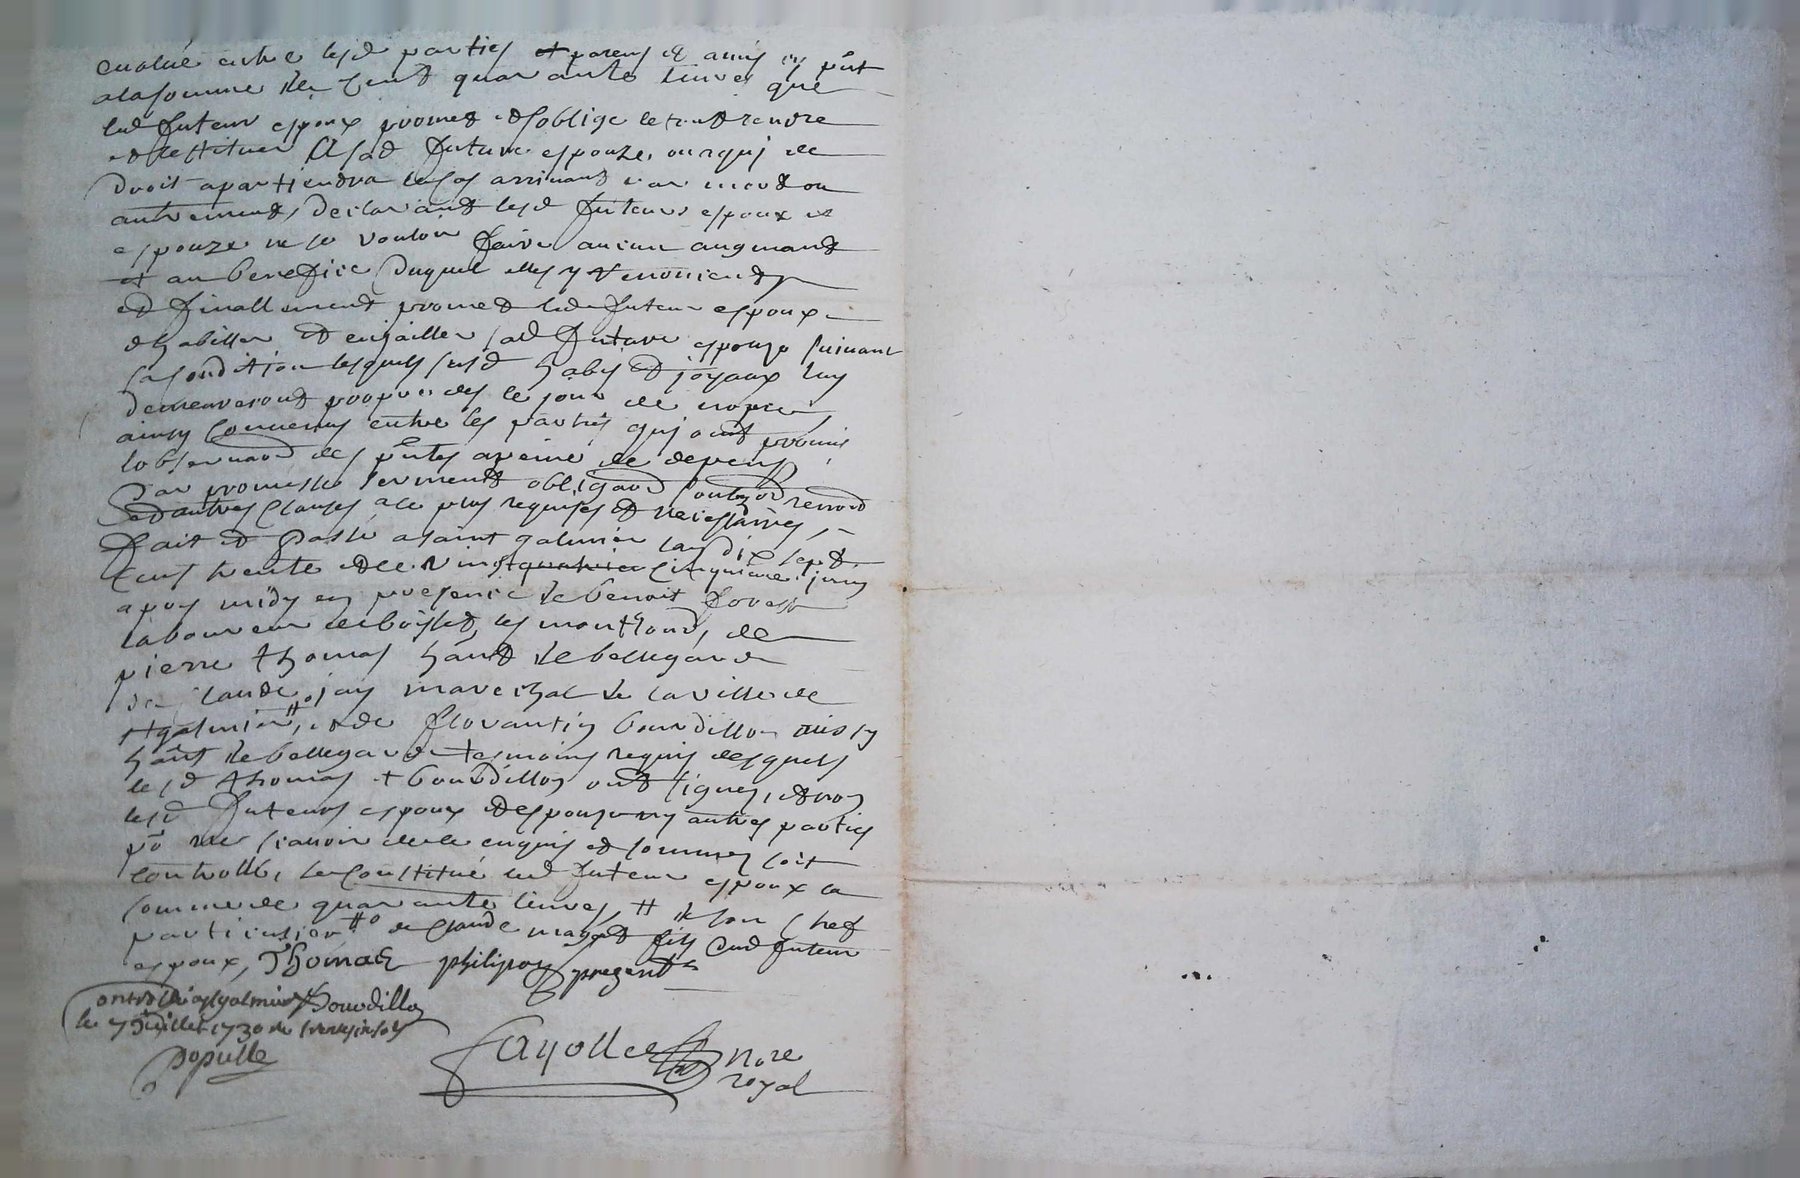 evalué entre lesd parties et parens et amis en pnt
a la somme de cent quarante livres que
led futeur espoux promet et soblige le tout rendre
et restituer a sad future espouze, ou a qui de
droit apartiendra le cas arrivant par mort ou
autrement, declarant lesd futeurs espoux et
espouze ne se vouloir faire aucun augmant
et au benefice duquel elles y renoncent
et finallement promet led futeur espoux
dhabiller et enjailler sad future espouze suivant
sa condition lesquels susd habis et joyaux luy
demeureront propres des le jour de nopces
ainsy convenus entre les parties qui ont promis
lobservaon des pntes a peine de depens
par promesse serment obligaon
et autres clauses a ce plus requises et necessaires
fait et passé a saint galmier lan dix sept
cens trente et le vingt quatrie cinquieme juin
apres midy en presence de benoit forest
laboureur de boisset, les montrond, de
pierre thomas hant de bellegarde
de claude jay marechal de la ville de
st galmier, et de florantin bourdillon aussy
hant de bellegarde tesmoins requis desquels
lesd thomas et bourdillon ont signes, et non
lesd futeurs espoux et espouze ny autres parties
po ne scavoir de ce enquis et sommes soit
controllé, se constitue led futeur espoux la
somme de quarante livres, de son chef
particulier de claude fils dud futeur
espoux, Thomas philipon present
Bourdillon
le 7 Juillet 1730
Populle
Fayolle nore
royal